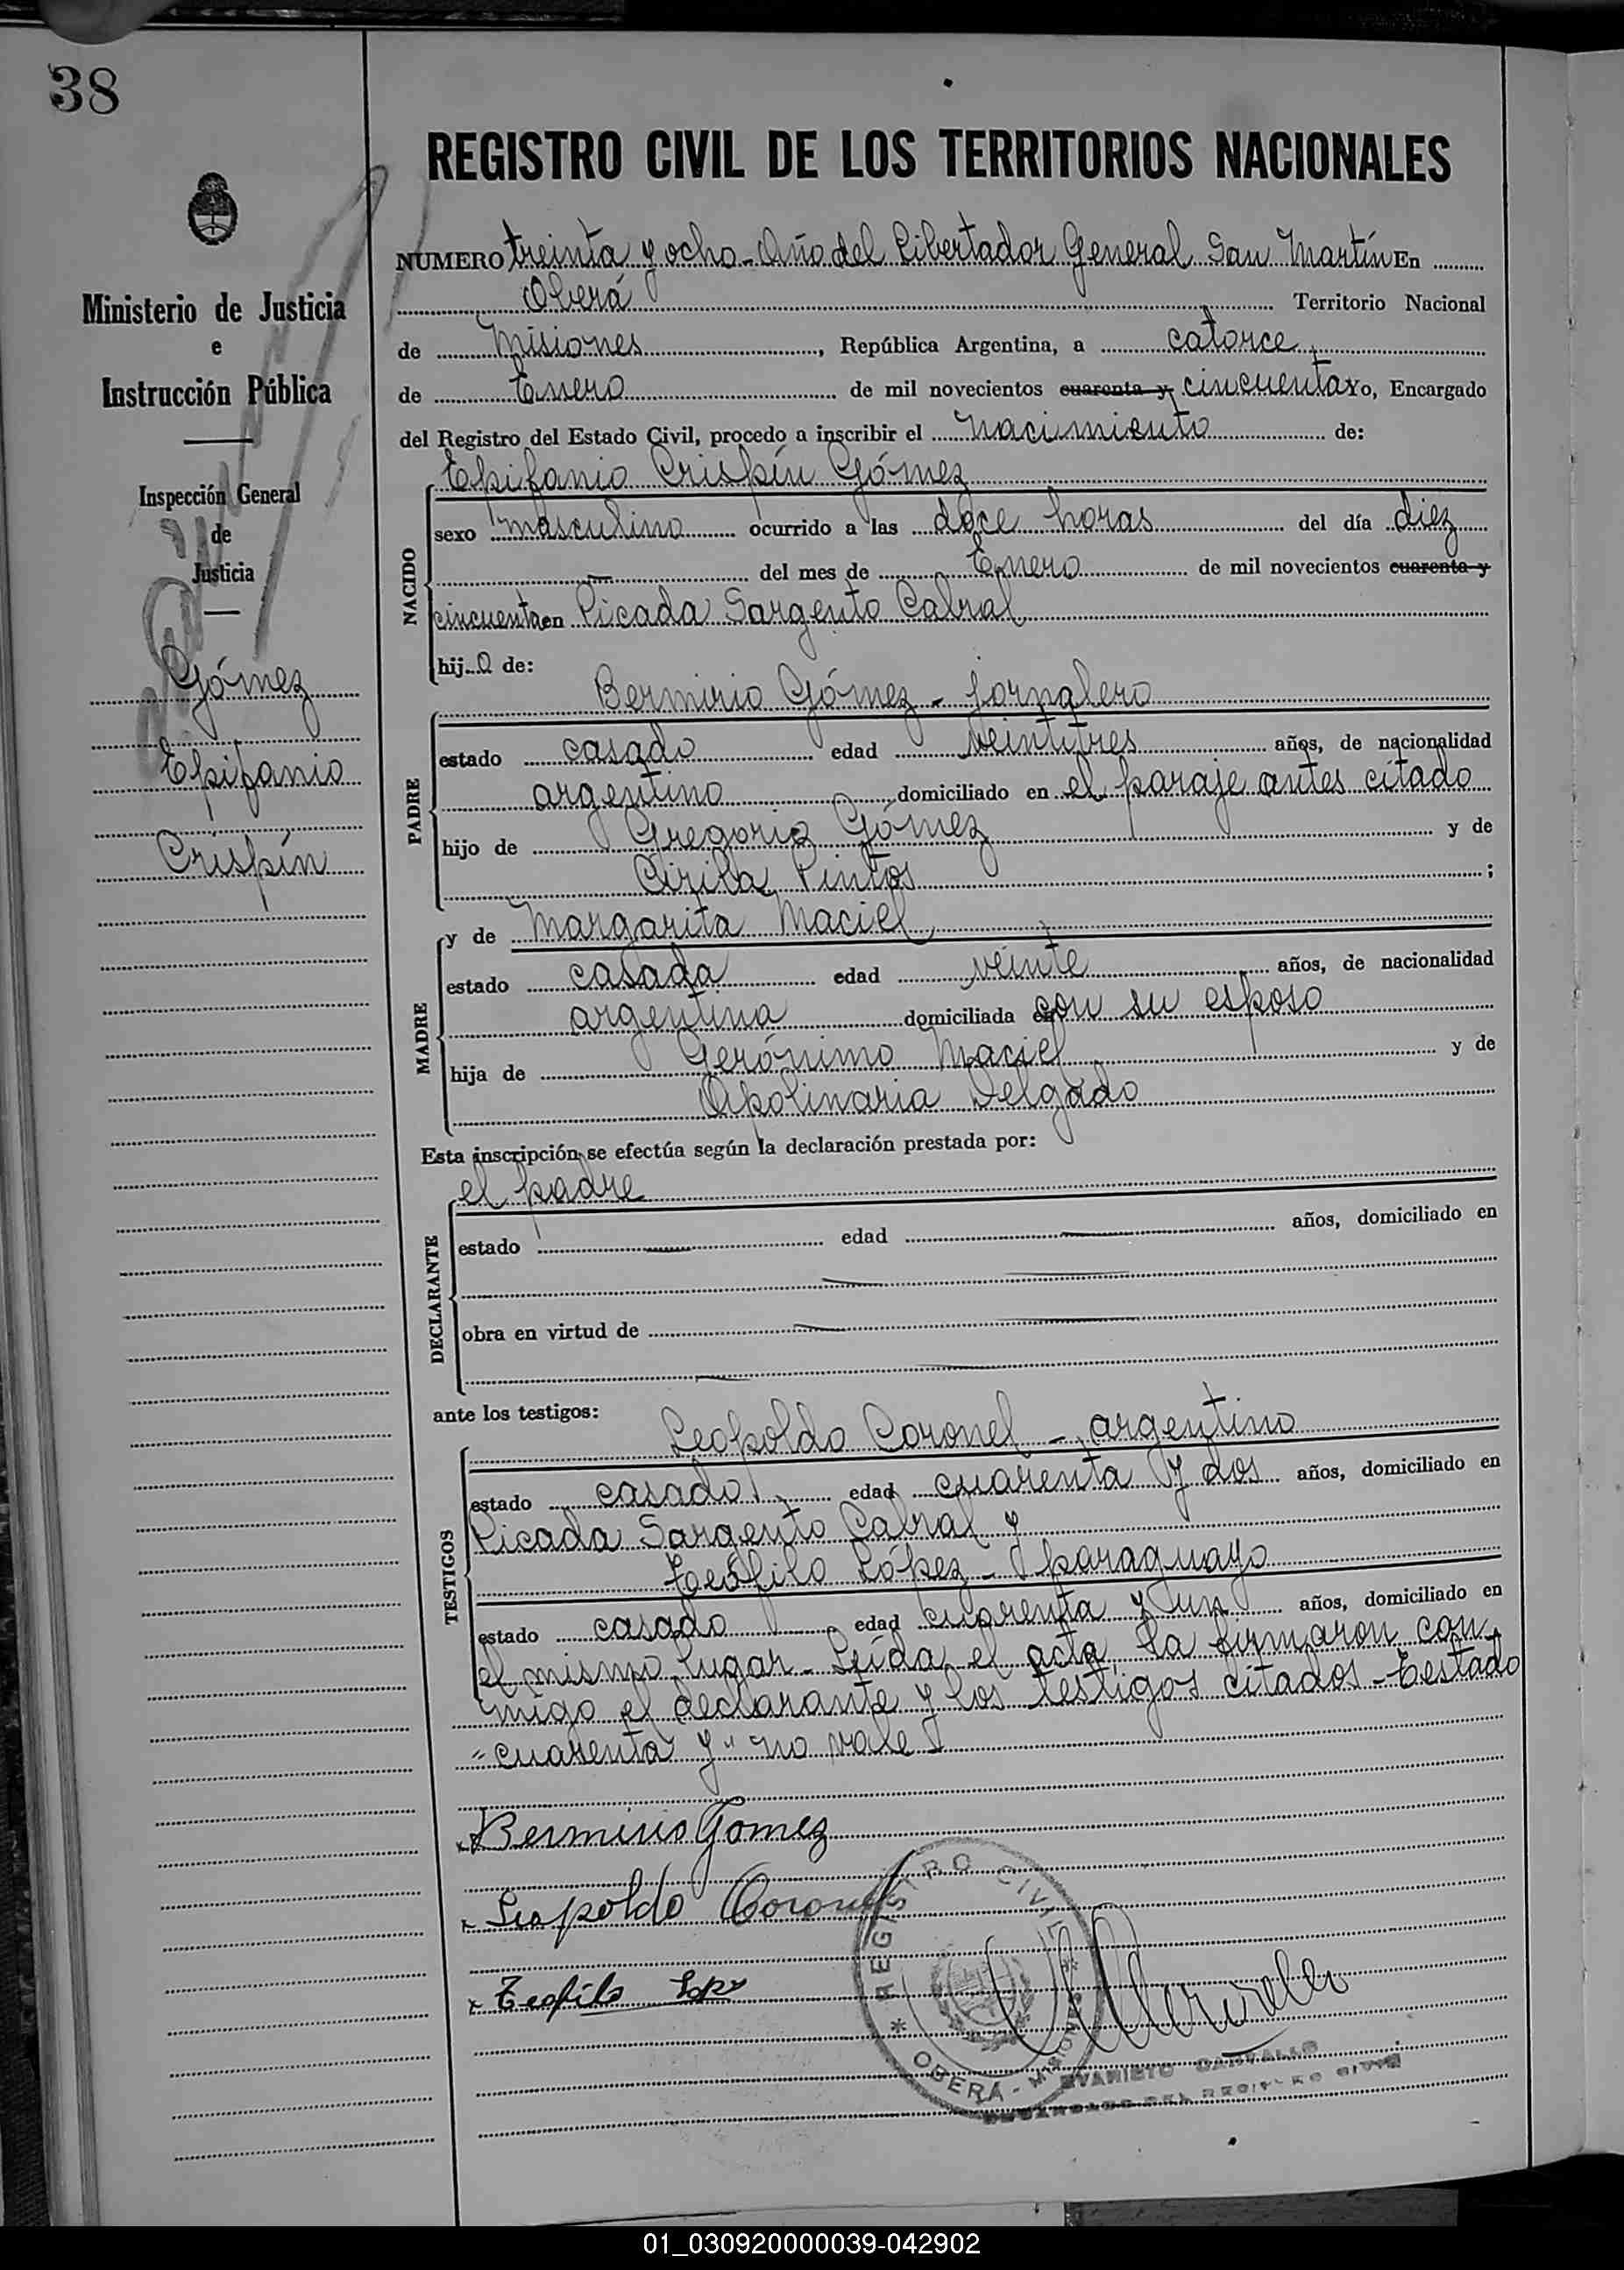 38
REGISTRO CIVIL DE LOS TERRITORIOS NACIONALES
Ministerio de Justicia
e
Instrucción Pública
Inspección General
de
Justicia
Gómez
Epifanio
Crispín
NUMERO treinta y ocho - Año del Libertador General San Martín En
Oberá Territorio Nacional
de Misiones, República Argentina, a catorce
de Enero de mil novecientos cuarenta y cincuenta Yo, Encargado
del Registro del Estado Civil, procedo a inscribir el nacimiento de:
Epifanio Crispín Gómez
NACIDO
sexo masculino ocurrido a las doce horas del día diez
del mes de Enero de mil novecientos cuarenta y
cincuenta en Picada Sargento Cabral
hijo de:
Bermirio Gómez - jornalero
PADRE
estado casado edad veintitres años, de nacionalidad
argentino domiciliado en el paraje antes citado
hijo de Gregorio Gómez y de
Cirila Pintos ;
y de Margarita Maciel
MADRE
estado casada edad veinte años, de nacionalidad
argentina domiciliada con su esposo
hija de Gerónimo Maciel y de
Apolinaria Delgado
Esta inscripción se efectúa según la declaración prestada por:
el padre
DECLARANTE
estado edad años, domiciliado en
obra en virtud de
ante los testigos:
Leopoldo Coronel - argentino
TESTIGOS
estado casado edad cuarenta y dos años, domiciliado en
Picada Sargento Cabral y
Teófilo López - paraguayo
estado casado edad cuarenta y un años, domiciliado en
el mismo lugar - Leída el acta, la firmaron con-
migo el declarante y los testigos citados - Testado
"cuarenta y" no vale
Bermirio Gomez
Leopoldo Coronel
Teofilo
REGISTRO CIVIL
OBERÁ - MISIONES
EVARISTO
ENCARGADO DEL REGISTRO CIVIL
01_030920000039-042902